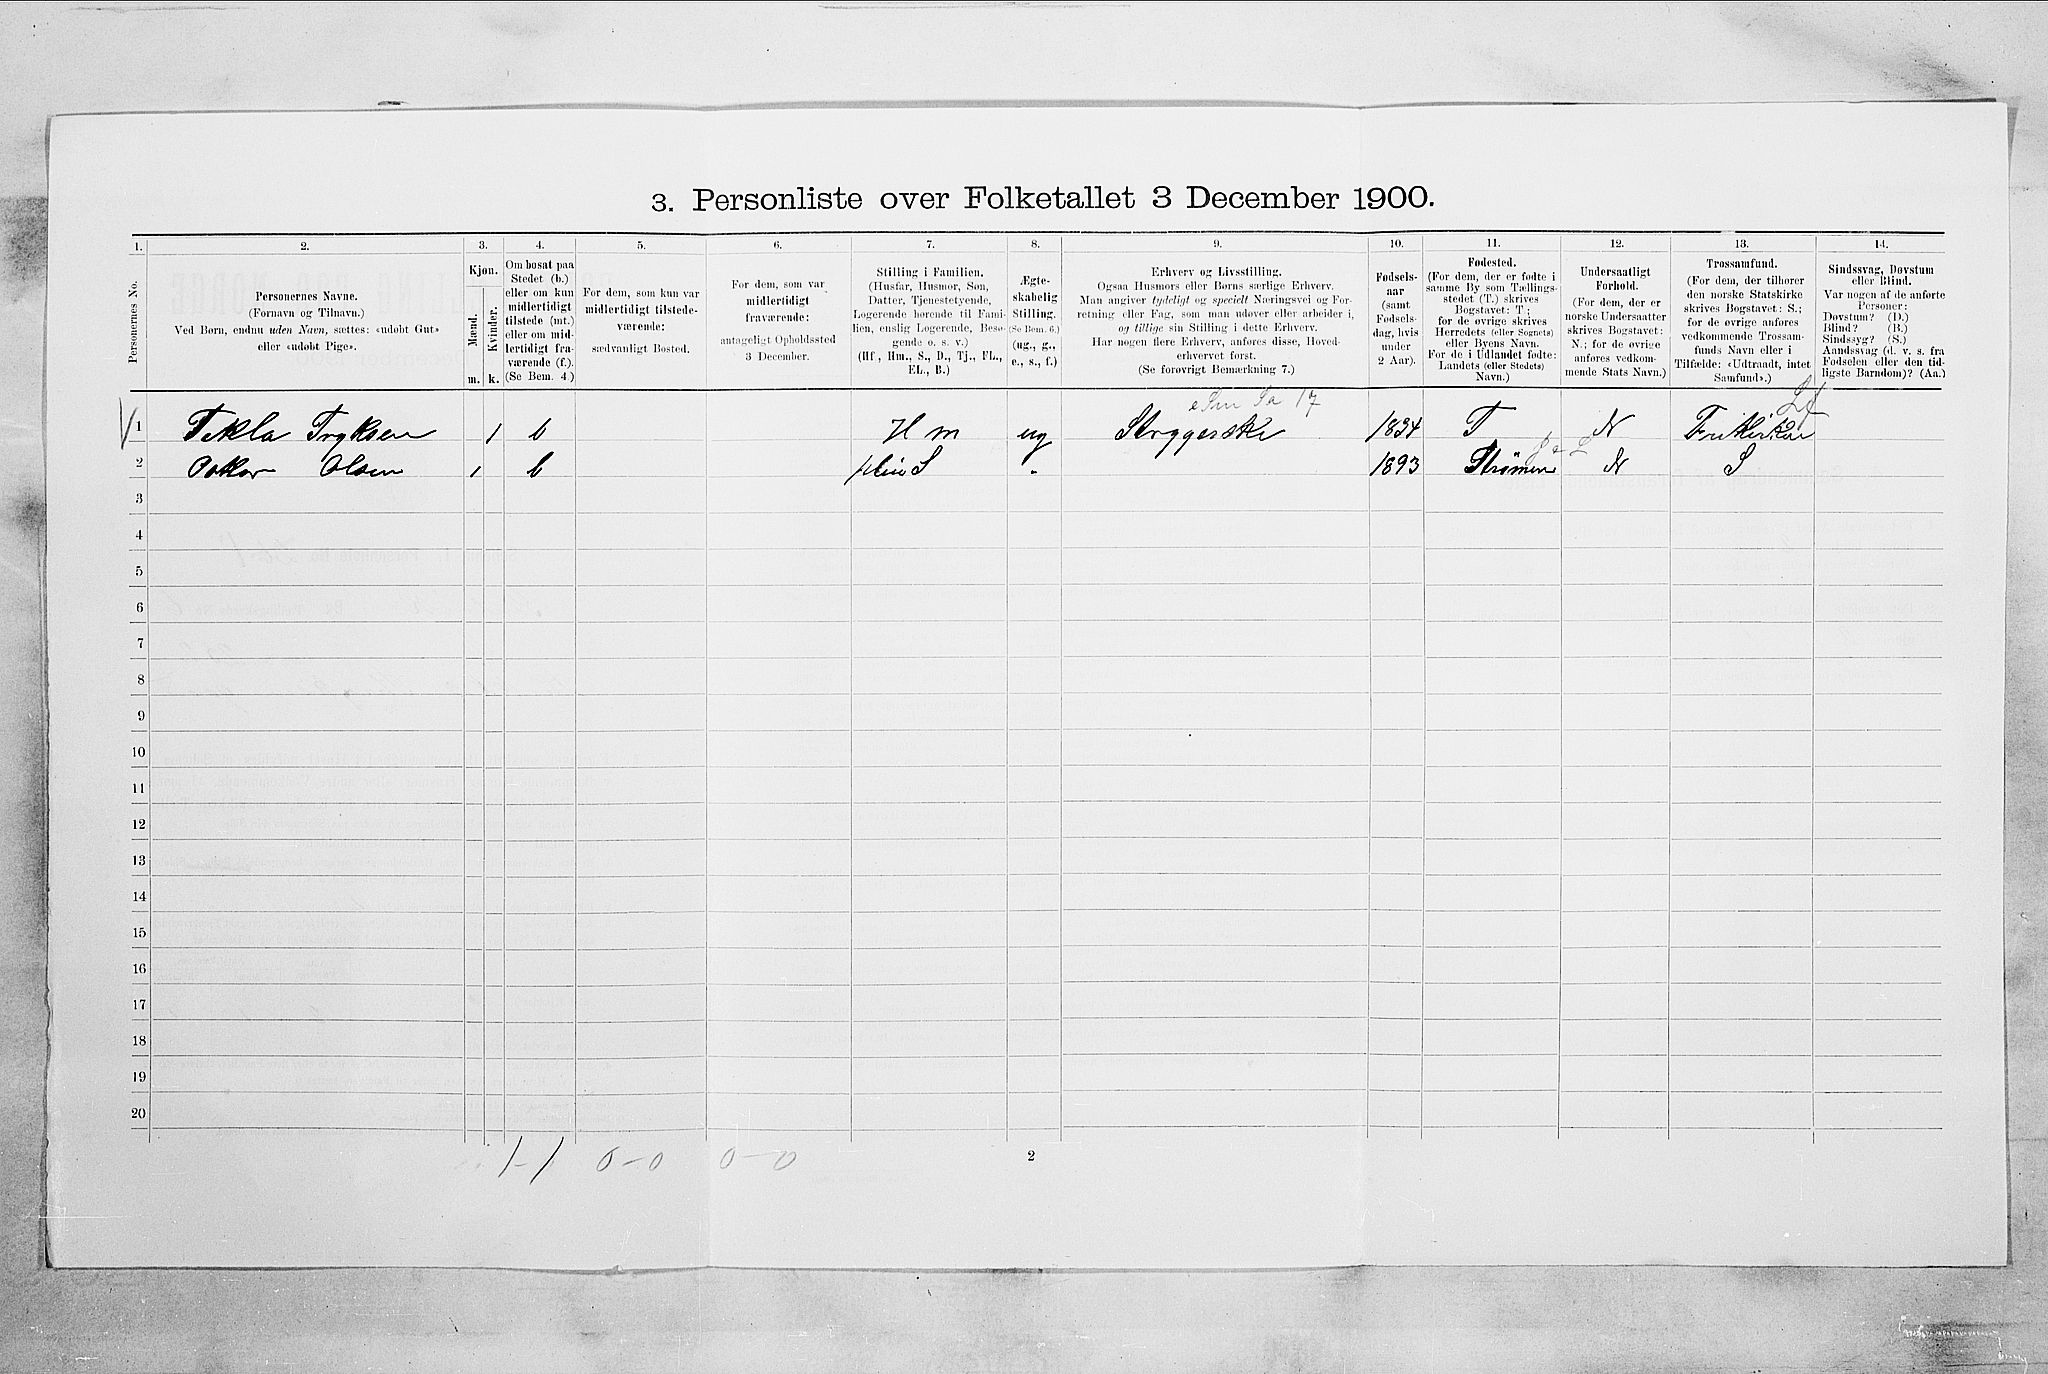 3. Personliste over Folketallet 3 December 1900.
1. 2. 3. 4. 5. 6. 7. 8. 9. 10. 11. 12. 13. 14.
Personernes No.
Personernes Navne.
(Fornavn og Tilnavn.)
Ved Børn, endnu uden Navn, sættes: «udøbt Gut»
eller «udøbt Pige».
Kjøn.
Mænd.
Kvinder.
m. k.
Om bosat paa
Stedet (b.)
eller om kun
midlertidigt
tilstede (mt.)
eller om mid-
lertidigt fra-
værende (f.)
(Se Bem. 4.)
For dem, som kun var
midlertidigt tilstede-
værende:
sædvanligt Bosted.
For dem, som var
midlertidigt
fraværende:
antageligt Opholdssted
3 December.
Stilling i Familien.
(Husfar, Husmor, Søn,
Datter, Tjenestetyende,
Logerende hørende til Fami-
lien, enslig Logerende, Besø-
gende o. s. v.)
(Hf., Hm., S., D., Tj., FL.,
EL., B.)
Ægte-
skabelig
Stilling.
(Se Bem. 6.)
(ug., g.,
e., s., f.)
Erhverv og Livsstilling.
Ogsaa Husmors eller Børns særlige Erhverv.
Man angiver tydeligt og specielt Næringsvei og For-
retning eller Fag, som man udøver eller arbeider i,
og tillige sin Stilling i dette Erhverv.
Har nogen flere Erhverv, anføres disse, Hoved-
erhvervet først.
(Se forøvrigt Bemærkning 7.)
Fødsels-
aar
(samt
Fødsels-
dag, hvis
under
2 Aar).
Fødested.
(For dem, der er fødte i
samme By som Tællings-
stedet (T.) skrives
Bogstavet: T;
for de øvrige skrives
Herredets (eller Sognets)
eller Byens Navn.
For de i Udlandet fødte:
Landets (eller Stedets)
Navn.)
Undersaatligt
Forhold.
(For dem, der er
norske Undersaatter
skrives Bogstavet:
N.; for de øvrige
anføres vedkom-
mende Stats Navn.)
Trossamfund.
(For dem, der tilhører
den norske Statskirke
skrives Bogstavet: S.;
for de øvrige anføres
vedkommende Trossam-
funds Navn eller i
Tilfælde: «Udtraadt, intet
Samfund».)
Sindssvag, Døvstum
eller Blind.
Var nogen af de anførte
Personer:
Døvstum? (D.)
Blind? (B.)
Sindssyg? (S.)
Aandssvag (d. v. s. fra
Fødselen eller den tid-
ligste Barndom)? (Aa.)
17
1 Tekla Tryksen 1 b Hm ug Strygerske 1834 T N Frikirken
2 Oskar Olsen 1 b S " 1893 Strømm N S
3
4
5
6
7
8
9
10
11
12
13
14
15
16
17
18
19
20
1-1 0-0 0-0 2